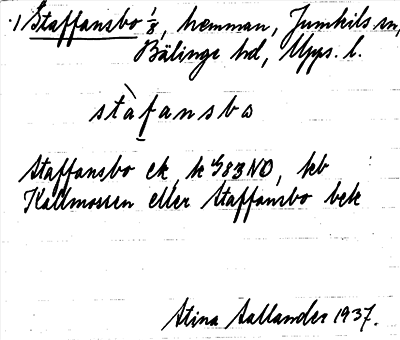 Staffansbo 1/8, hemman, Jumkils sn,
Bälinge hd, Upps. l.
stàfansbo
Staffansbo ek, k G83NO, kb
Källmossen eller Staffansbo bek
Stina Aallander 1937.